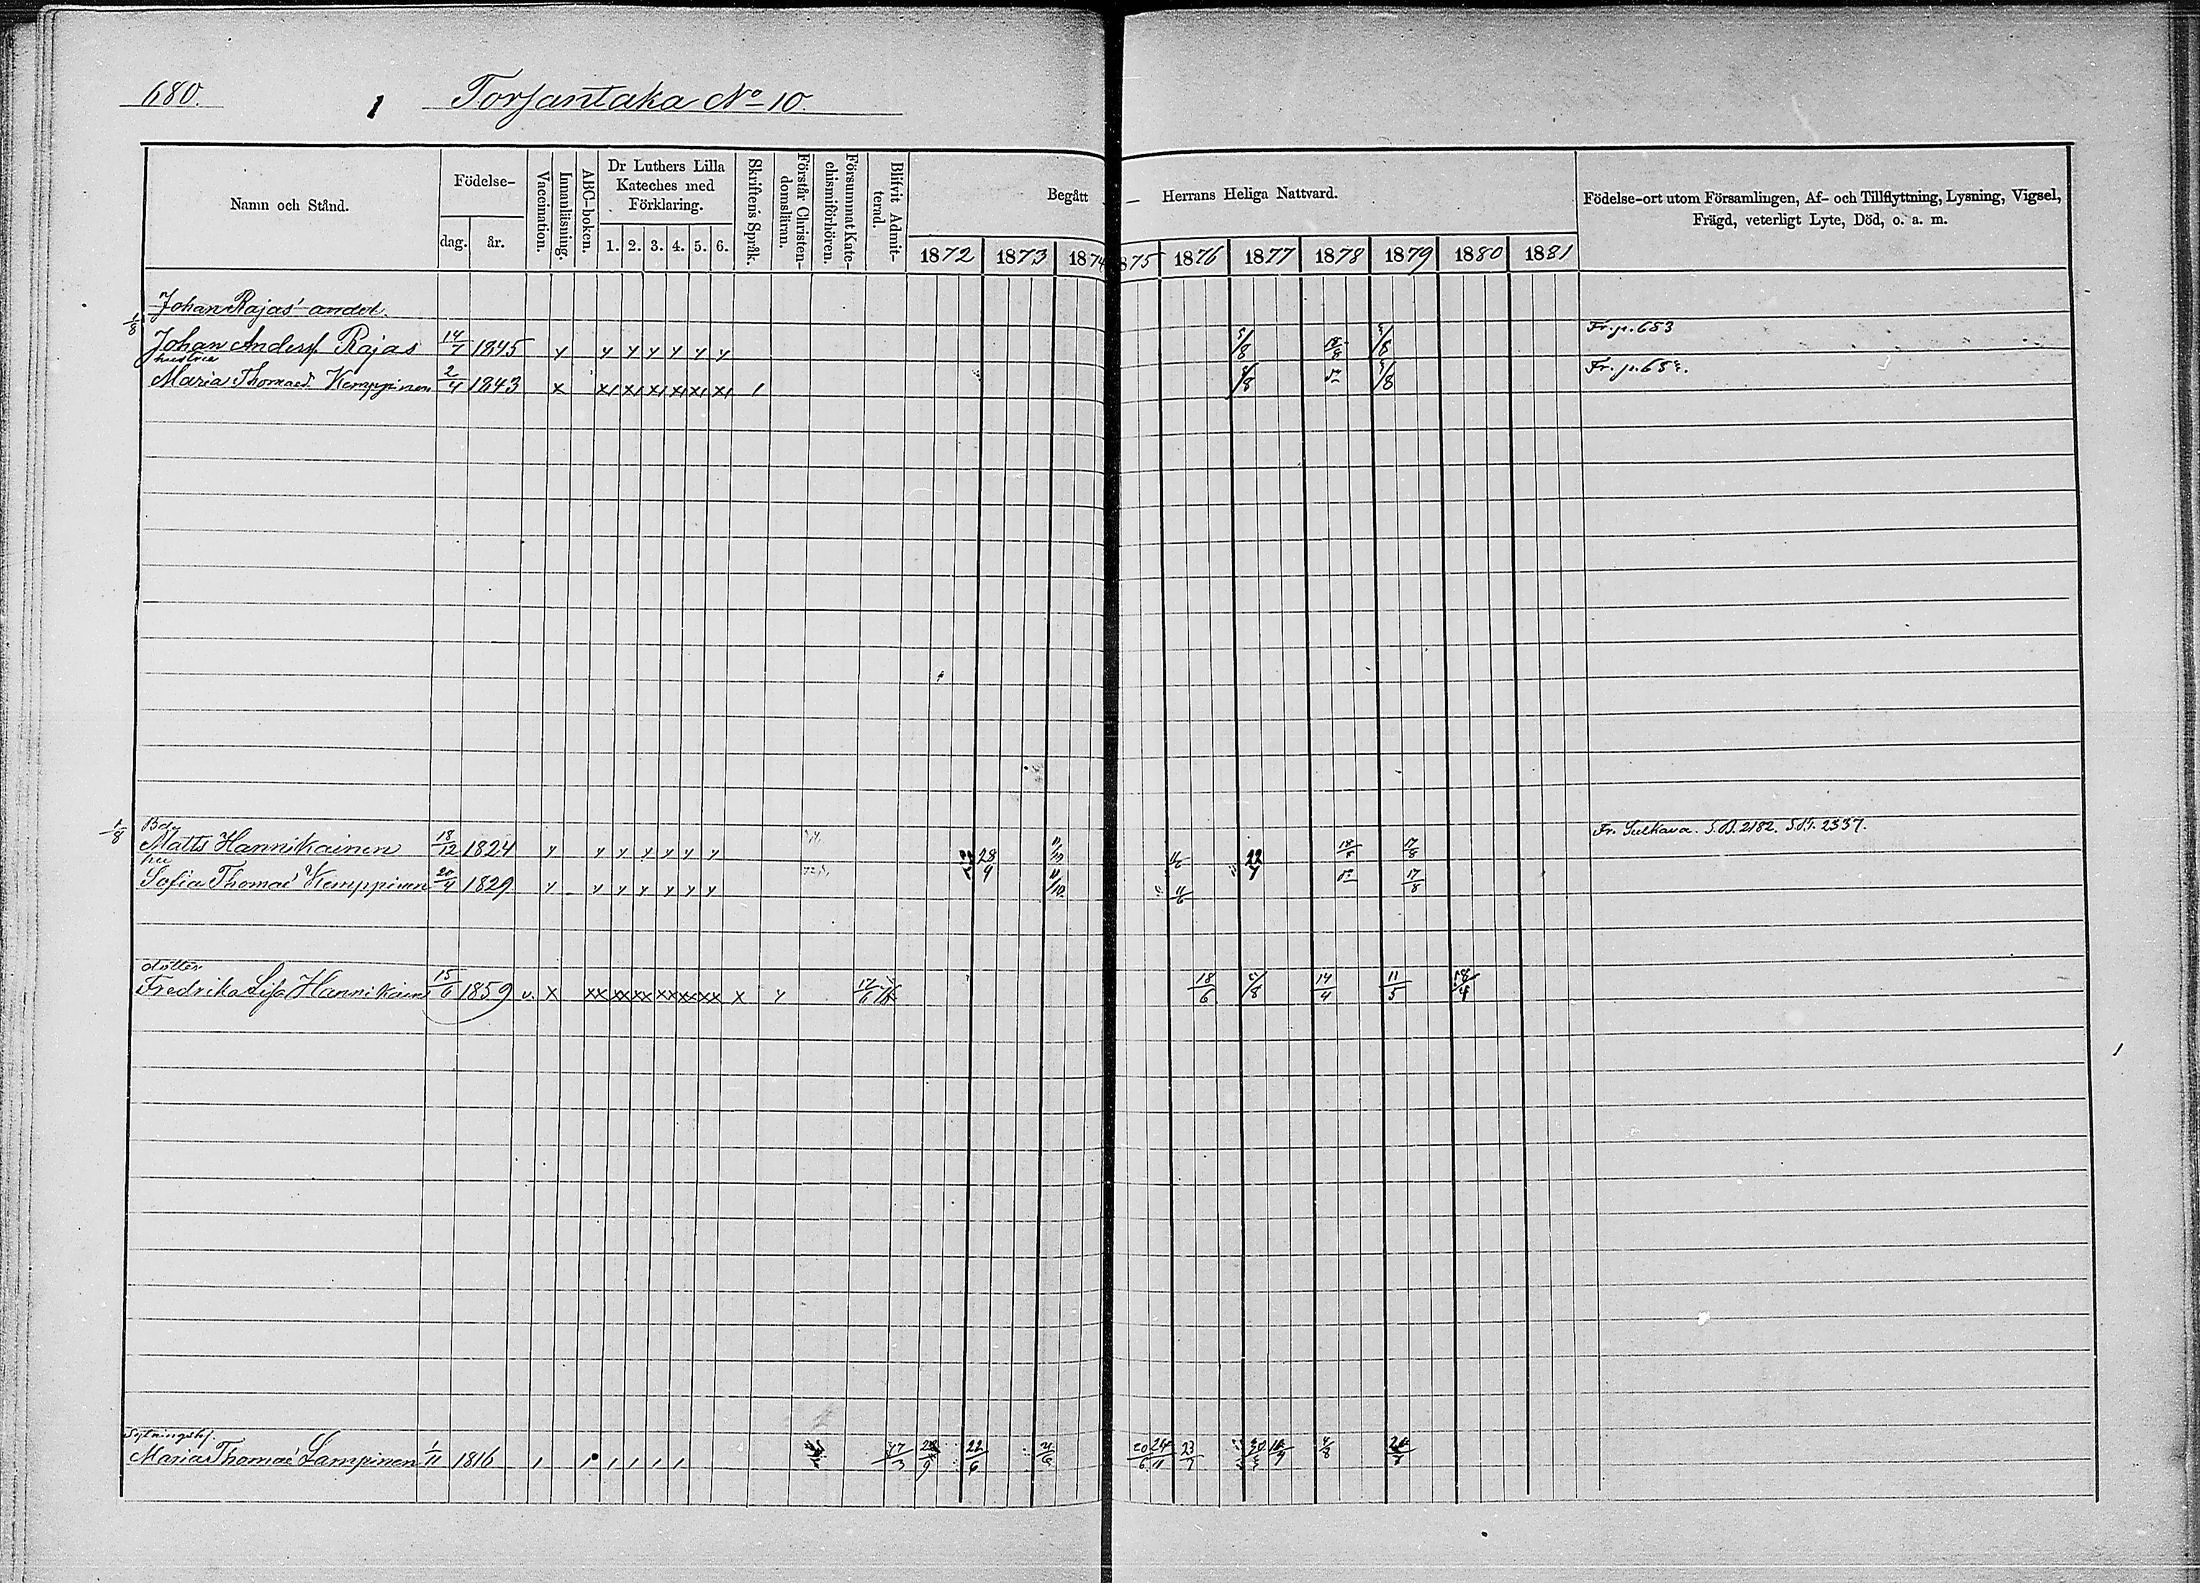 680. 1 Torsantaka No 10.
Namn och Stånd. Födelse- dag. år. Vaccination. Innanläsning. ABC-boken. Dr Luthers Lilla Kateches med Förklaring. 1. 2. 3. 4. 5. 6. Skriftens Språk. Förstår Christendomsläran. Försummat Katechismiförhören. Blifvit Admitterad. Begått Herrans Heliga Nattvard. Födelse-ort utom Församlingen, Af- och Tillflyttning, Lysning, Vigsel, Frägd, veterligt Lyte, Död, o. a. m.
1872 1873 1874 875 1876 1877 1878 1879 1880 1881
Johan Rajas' andel.
1/8 Johan Anderss. Rajas 14/7 1845 y y y y y y y 5/8 18/8 5/8 Fr. p. 653
hustru
Maria Thomaed. Kemppinen 2/4 1843 x x1 x1 x1 x1 x1 x1 1 5/8 do 5/8 Fr. p.
1/8 Matts Hannikainen 18/12 1824 y y y y y y y 28/4 11/10 11/6 22/4 18/8 17/8 Fr. Sulkava. S.B. 2182. 2337.
hu
Sofia Thomae Kemppinen 20/4 1829 y y y y y y y 11/10 11/6 do 17/8
dotter
Fredrika Lisa Hannikainen 15/6 1859 v. x xx xx xx xx xx xx x y 17/6 18/6 5/8 14/4 11/5 18/4
Sytningshj.
Maria Thomae Lampinen 1/11 1816 22/6 20/6 24/11 23/7 4/8